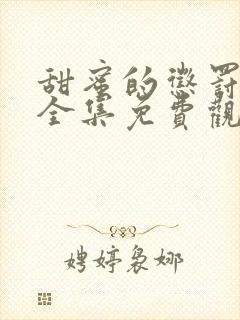 甜蜜的懲罰
全集免費觀
娉婷裊娜